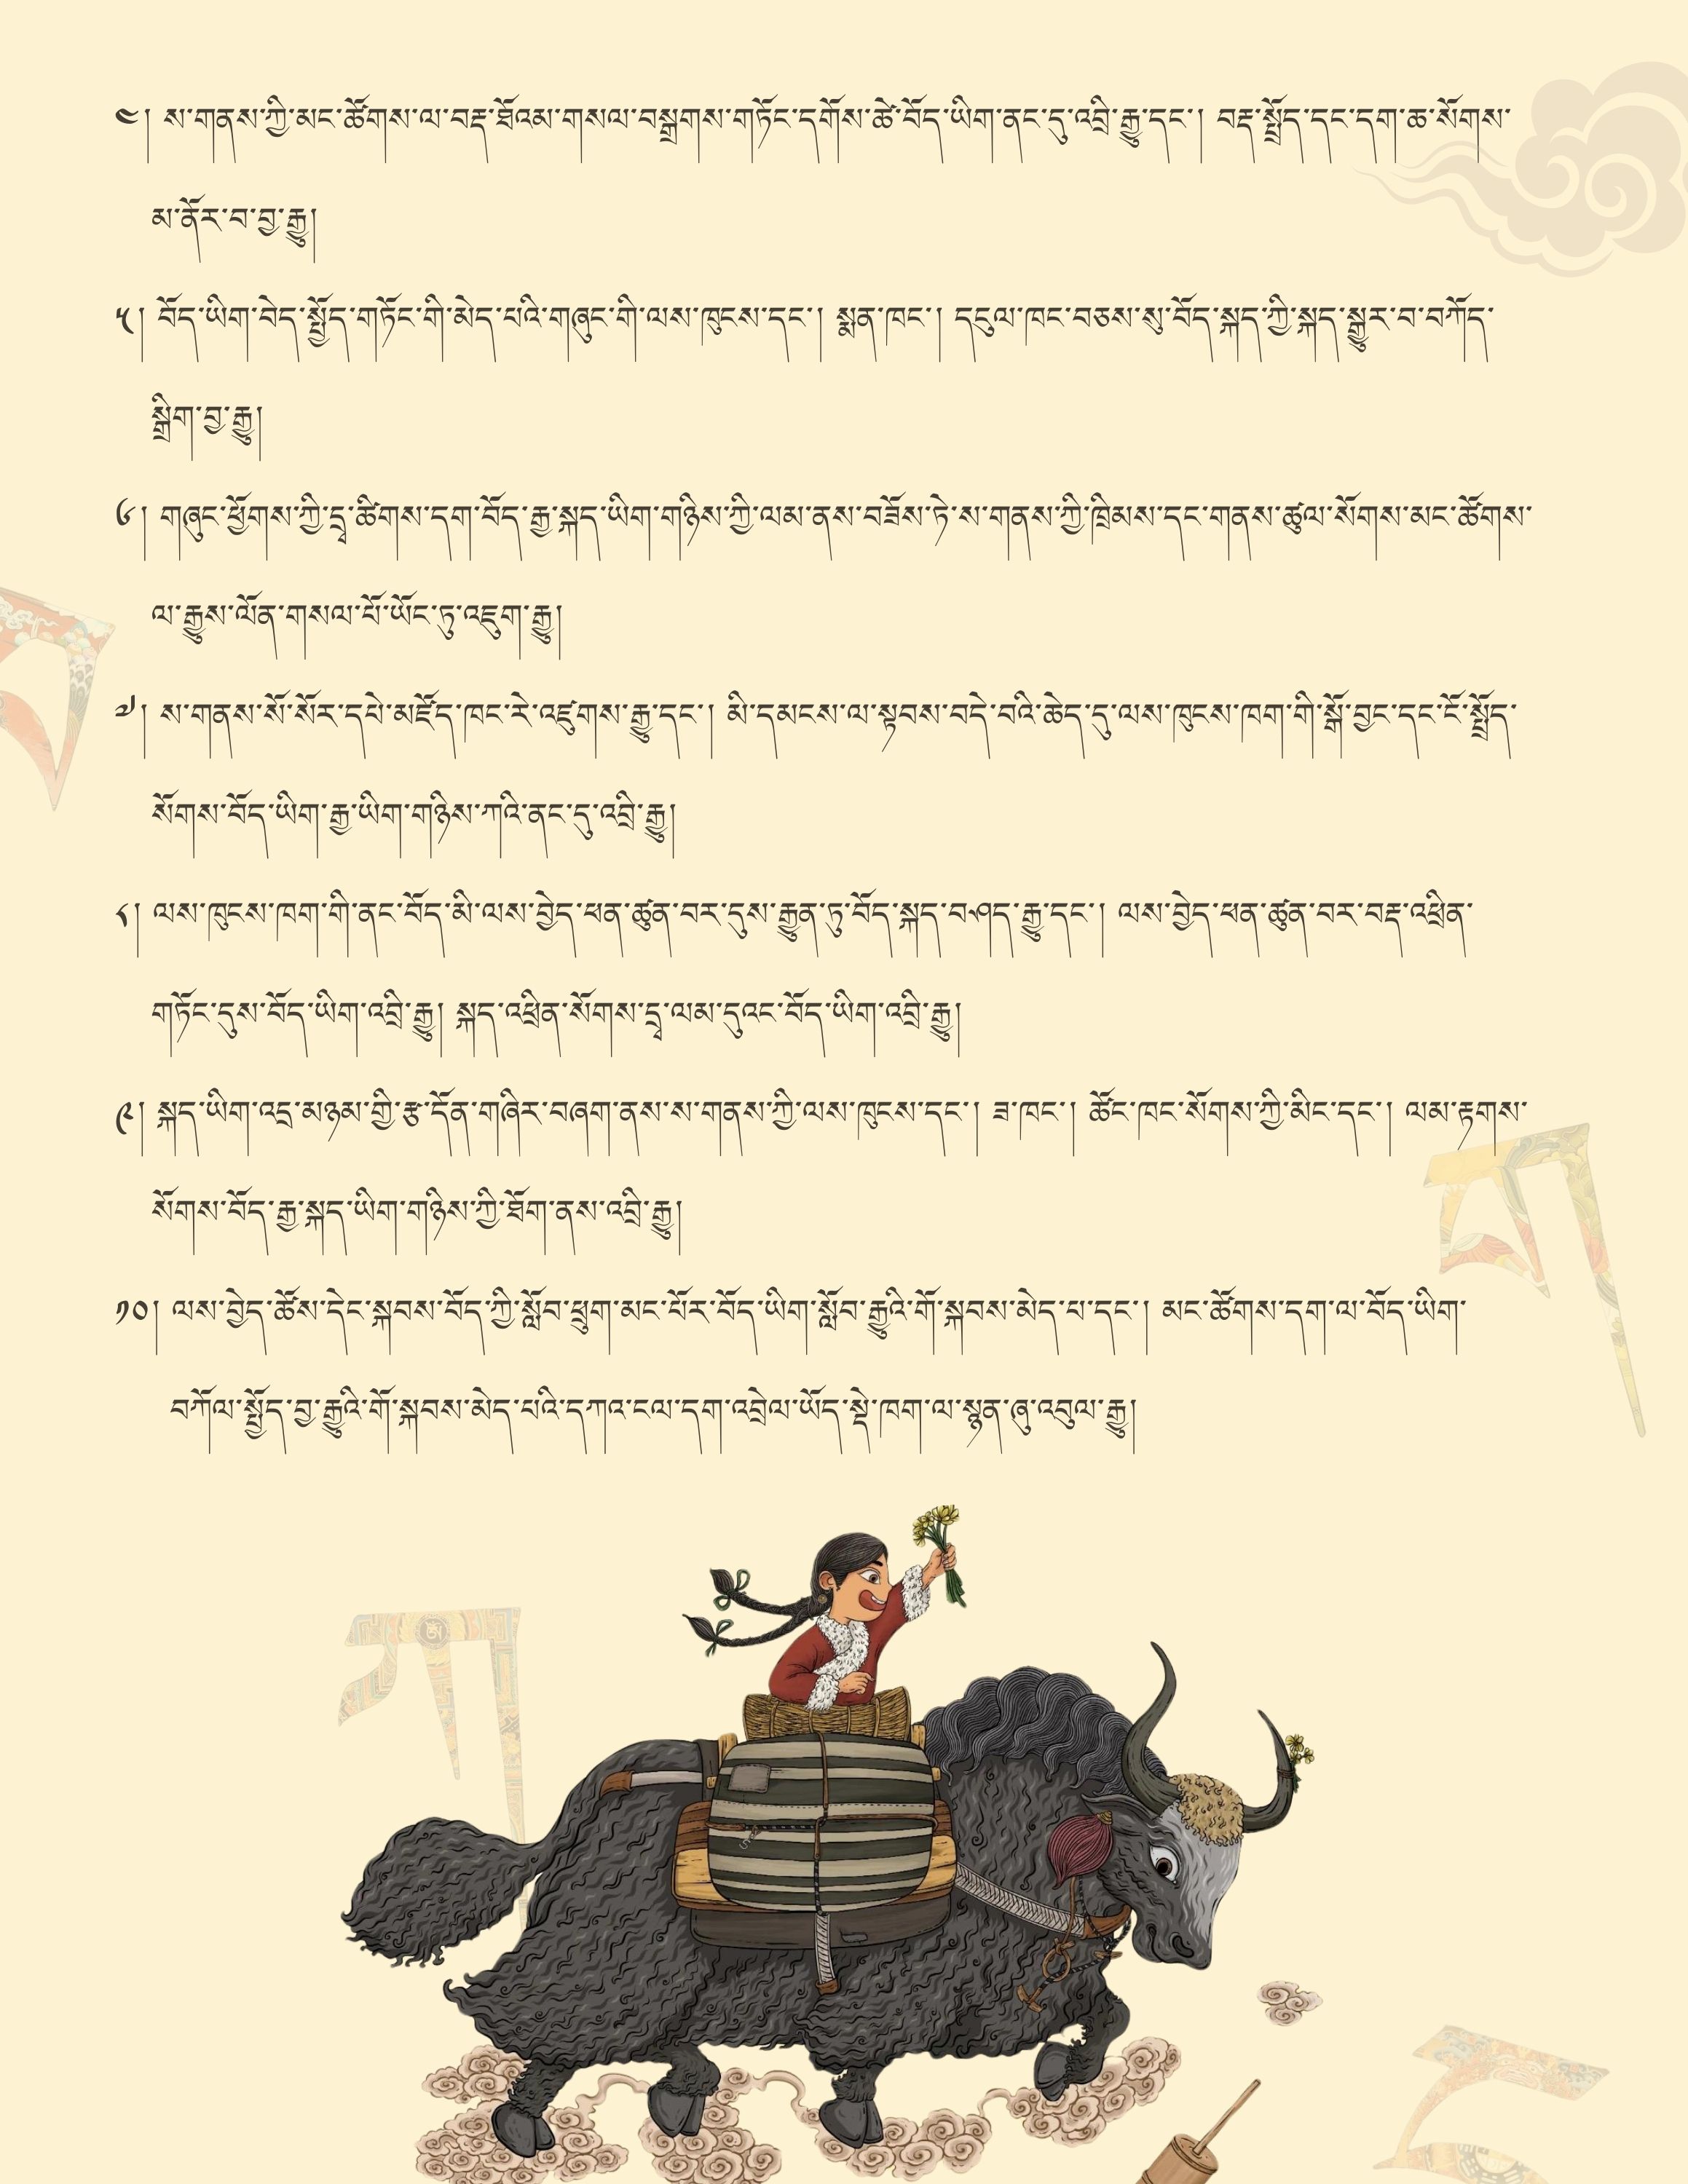 ༤། ས་གནས་ཀྱི་མང་ཚོགས་ལ་བརྡ་ཐོའམ་གསལ་བསྒྲགས་གཏོང་དགོས་ཚེ་བོད་ཡིག་ནང་དུ་འབྲི་རྒྱུ་དང་། བརྡ་སྤྲོད་དང་དག་ཆ་སོགས་
མ་ནོར་བ་བྱ་རྒྱུ།
༥། བོད་ཡིག་བེད་སྤྱོད་གཏོང་གི་མེད་པའི་གཞུང་གི་ལས་ཁུངས་དང་། སྨན་ཁང་། དངུལ་ཁང་བཅས་སུ་བོད་སྐད་ཀྱི་སྐད་སྒྱུར་བ་བཀོད་
སྒྲིག་བྱ་རྒྱུ།
༦། གཞུང་ཕྱོགས་ཀྱི་དྲྭ་ཚིགས་དག་བོད་རྒྱ་སྐད་ཡིག་གཉིས་ཀྱི་ལམ་ནས་བཟོས་ཏེ་ས་གནས་ཀྱི་ཁྲིམས་དང་གནས་ཚུལ་སོགས་མང་ཚོགས་
ལ་རྒྱུས་ལོན་གསལ་པོ་ཡོང་ཏུ་འཇུག་རྒྱུ།
༧། ས་གནས་སོ་སོར་དཔེ་མཛོད་ཁང་རེ་འཛུགས་རྒྱུ་དང་། མི་དམངས་ལ་སྟབས་བདེ་བའི་ཆེད་དུ་ལས་ཁུངས་ཁག་གི་སྒོ་བྱང་དང་ངོ་སྤྲོད་
སོགས་བོད་ཡིག་རྒྱ་ཡིག་གཉིས་ཀའི་ནང་དུ་འབྲི་རྒྱུ།
༨། ལས་ཁུངས་ཁག་གི་ནང་བོད་མི་ལས་བྱེད་ཕན་ཚུན་བར་དུས་རྒྱུན་ཏུ་བོད་སྐད་བཤད་རྒྱུ་དང་། ལས་བྱེད་ཕན་ཚུན་བར་བརྡ་འཕྲིན་
གཏོང་དུས་བོད་ཡིག་འབྲི་རྒྱུ། སྐད་འཕྲིན་སོགས་དྲྭ་ལམ་དུའང་བོད་ཡིག་འབྲི་རྒྱུ།
༩། སྐད་ཡིག་འདྲ་མཉམ་གྱི་རྩ་དོན་གཞིར་བཞག་ནས་ས་གནས་ཀྱི་ལས་ཁུངས་དང་། ཟ་ཁང་། ཚོང་ཁང་སོགས་ཀྱི་མིང་དང་། ལམ་རྟགས་
སོགས་བོད་རྒྱ་སྐད་ཡིག་གཉིས་ཀྱི་ཐོག་ནས་འབྲི་རྒྱུ།
༡༠། ལས་བྱེད་ཚོས་དེང་སྐབས་བོད་ཀྱི་སློབ་ཕྲུག་མང་པོར་བོད་ཡིག་སློབ་རྒྱུའི་གོ་སྐབས་མེད་པ་དང་། མང་ཚོགས་དག་ལ་བོད་ཡིག་
བཀོལ་སྤྱོད་བྱ་རྒྱུའི་གོ་སྐབས་མེད་པའི་དཀའ་ངལ་དག་འབྲེལ་ཡོད་སྡེ་ཁག་ལ་སྙན་ཞུ་འབུལ་རྒྱུ།